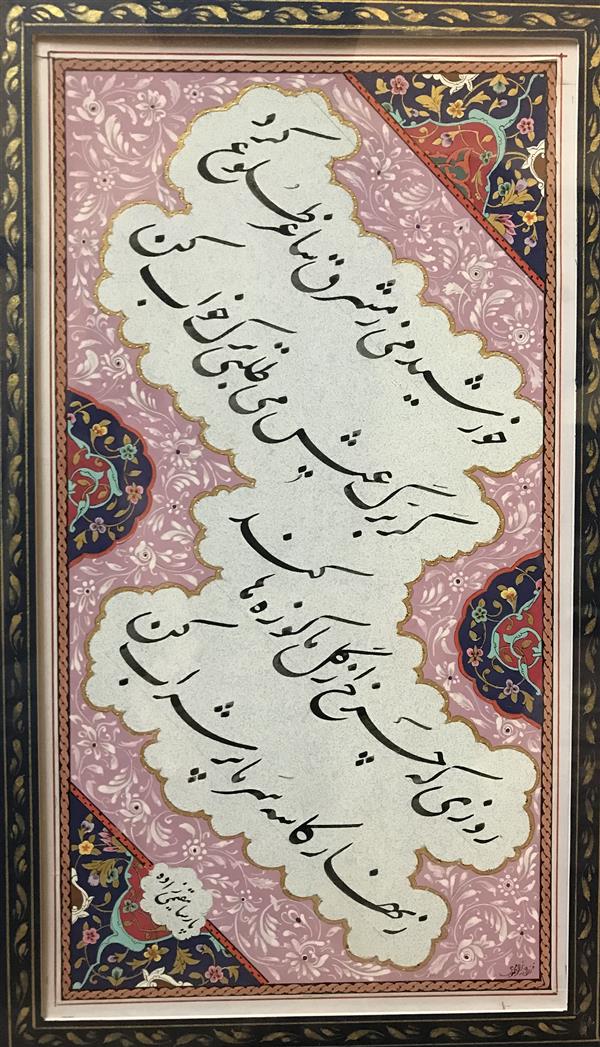 خورشید می ز مشرق ساغر طلوع کرد
گر برگ عیش می طلبی ترک خواب کن
روزی که چرخ از گل ما کوزه ها کند
زنهار کاسه سر ما پر شراب کن
پارسا زاده